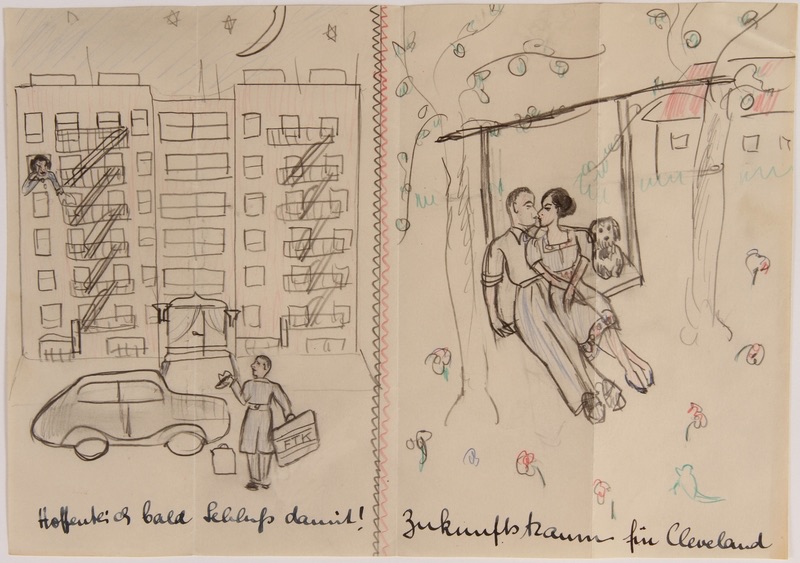 FTK
Hoffentlich bald Schluß damit!
Zukunftstraum für Cleveland